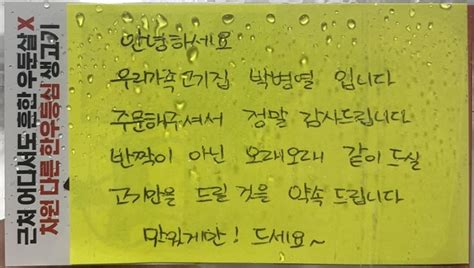 근저 어디서도 흔한 우둔살 X
차원 다른 한우등심 생고기
안녕하세요
우리가족고기집 박병열 입니다
주문해주셔서 정말 감사드립니다
반짝이 아닌 오래오래 같이 드실
고기만을 드릴 것을 약속 드립니다
맛있게만! 드세요~